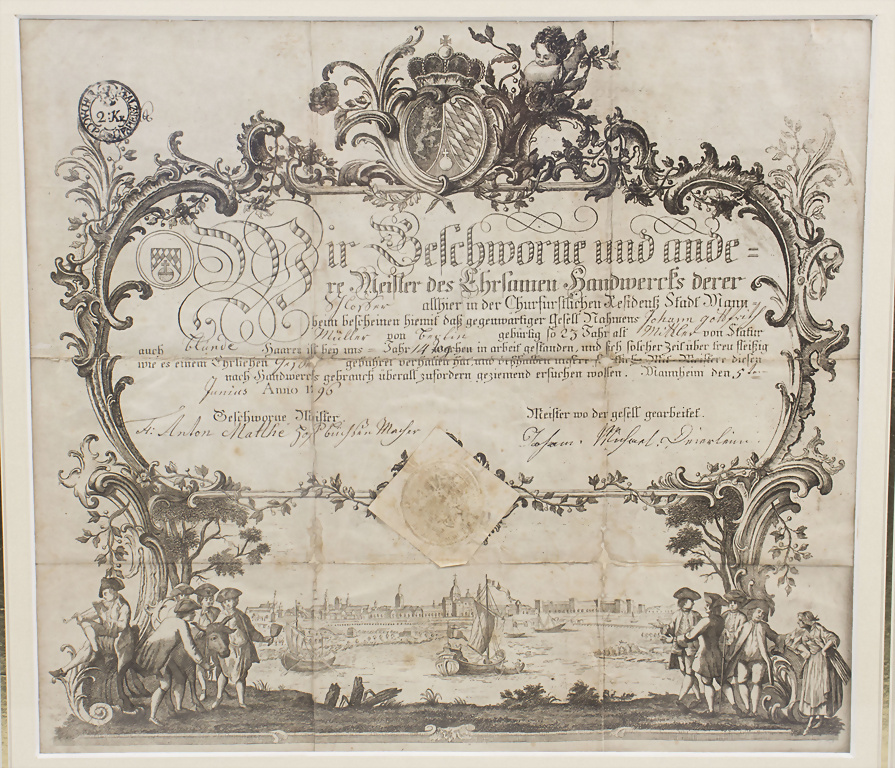 2. Kr.
Wir Beschworne und ande=
re Meister des Ehrsamen Handwercks derer
Schlosser allhier in der Churfürstlichen Residentz Stadt Mann
heim bescheinen hiemit daß gegenwärtiger Gesell Nahmens Johann Gottfrid
Müller von Berlin gebürtig so 25 Jahr alt Mittler von Statur
auch blande Haaren ist bey uns = Jahr 14 wochen in arbeit gestanden, und sich solcher Zeit über treu fleisig
wie es einem Ehrlichen gebühret verhalten hat
nach Handwercks gebrauch überall zufordern geziemend ersuchen wollen. Mannheim den 5
Junius Anno 1796
Geschworne Meister Meister wo der gesell gearbeitet.
Fr: Anton Matthé büchsen Macher Johann Michael